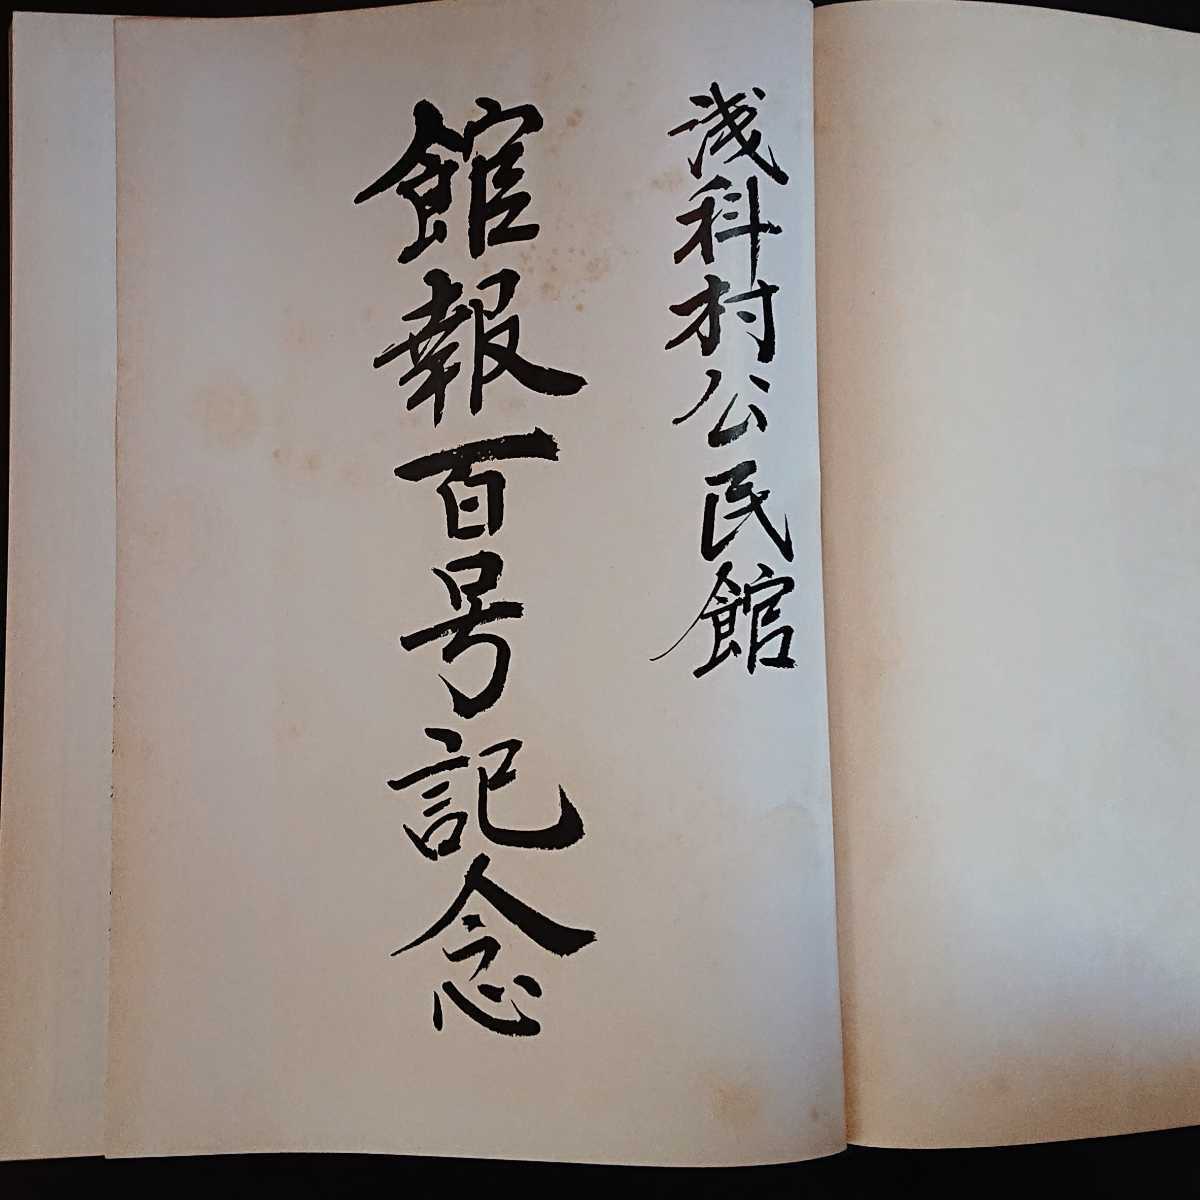 浅科村公民館
館報百号記念